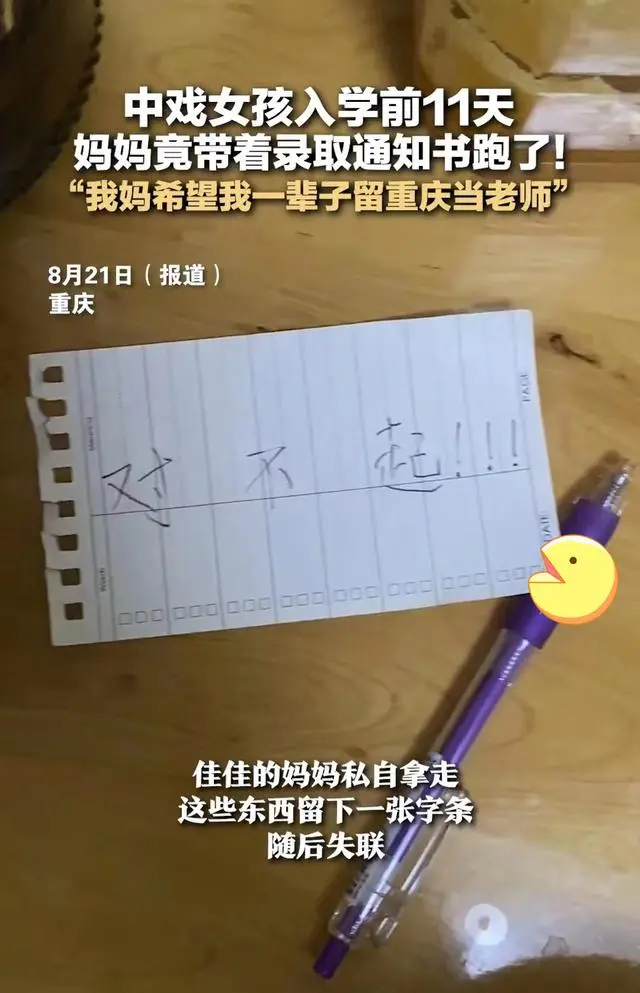 中戏女孩入学前11天
妈妈竟带着录取通知书跑了!
“我妈希望我一辈子留重庆当老师”
8月21日（报道）
重庆
PAGE
对 不 起!!!
DATE
佳佳的妈妈私自拿走
这些东西留下一张字条
随后失联